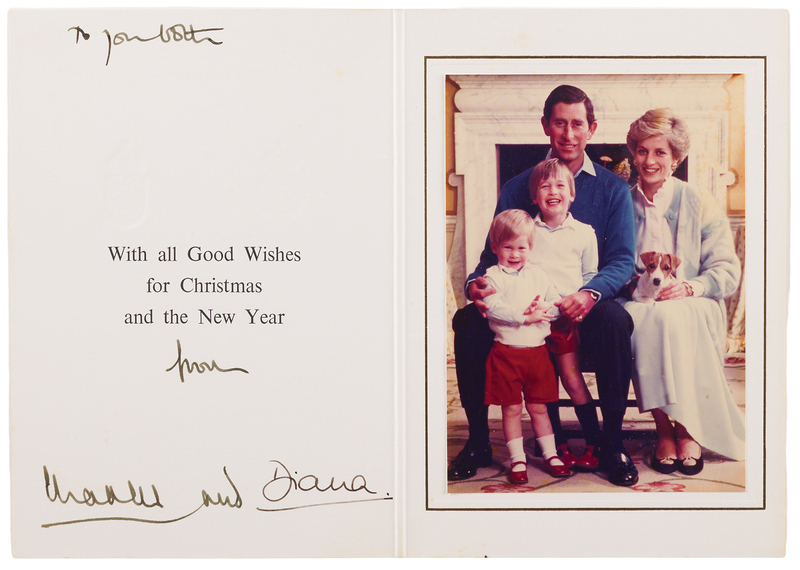 To
With all Good Wishes
for Christmas
and the New Year
from
Charles and Diana.